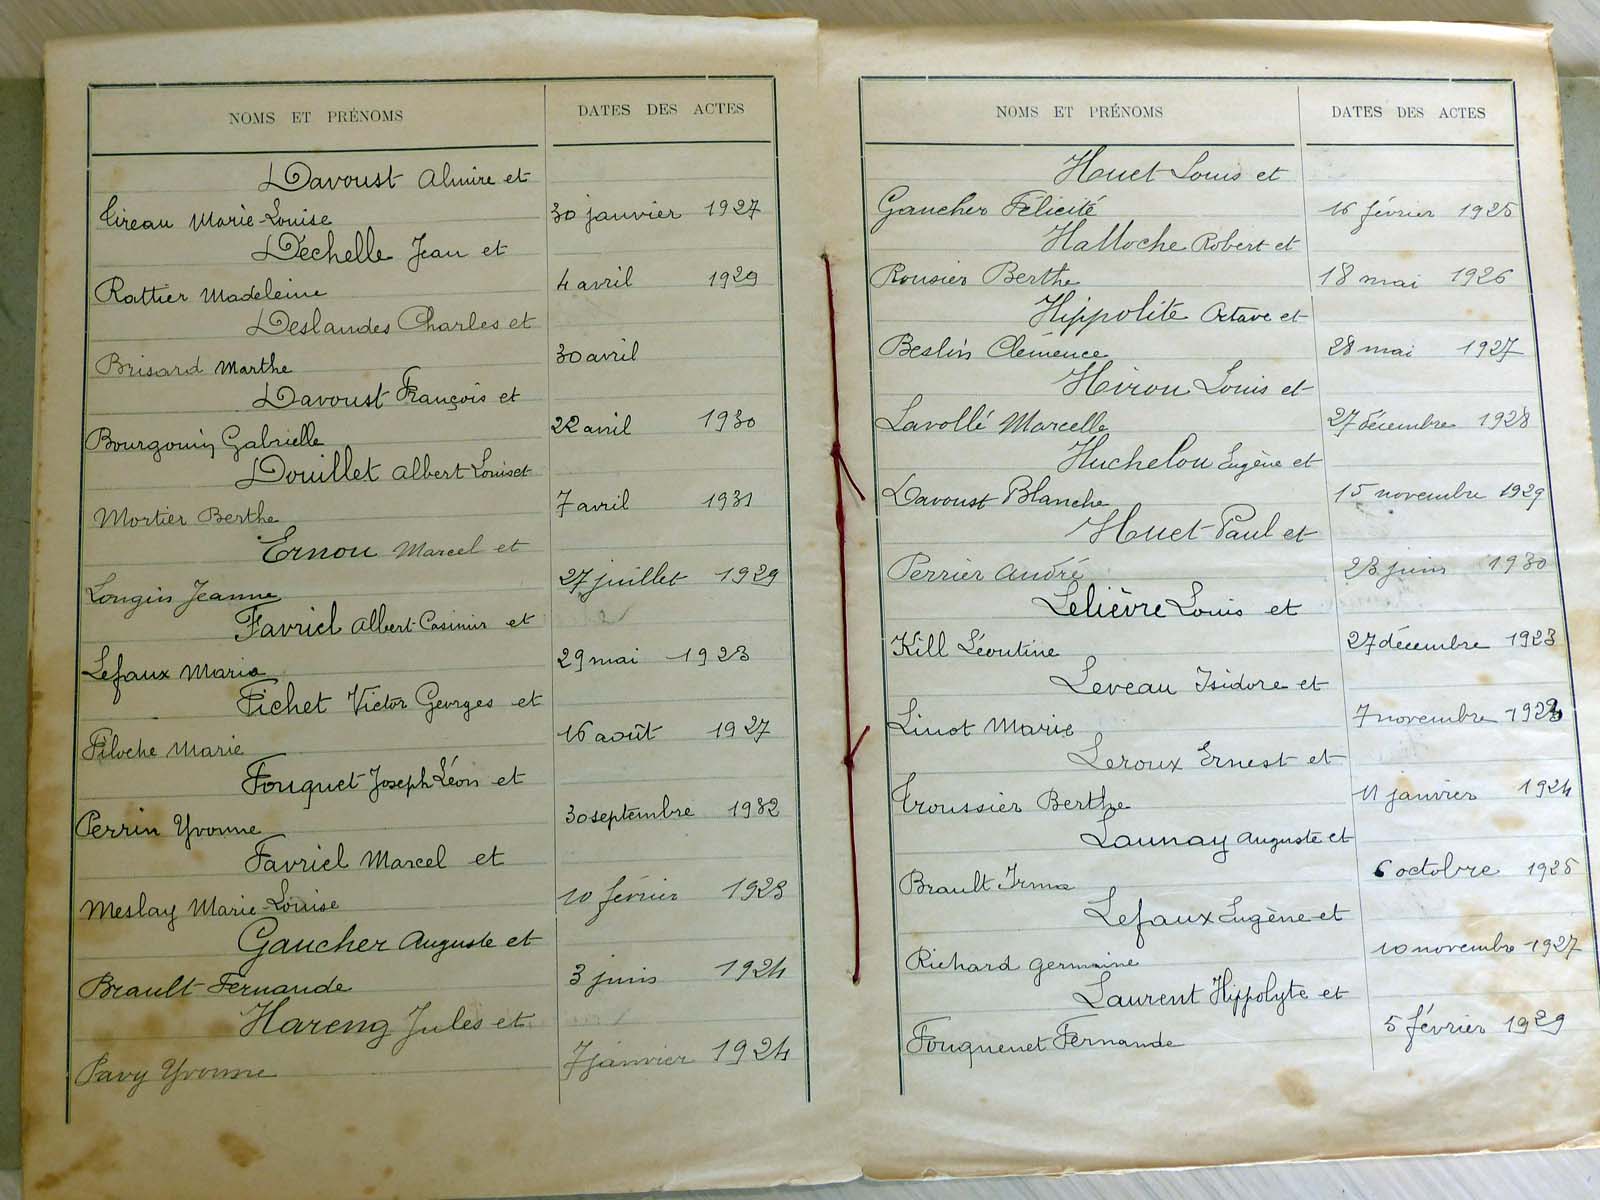 NOMS ET PRÉNOMS DATES DES ACTES
Davoust Almire et
Tireau Marie-Louise 30 janvier 1927
Déchelle Jean et
Rattier Madeleine 4 avril 1929
Deslandes Charles et
Brisard Marthe 30 avril
Davoust François et
Bourgouin Gabrielle 22 avril 1930
Douillet Albert Louis et
Mortier Berthe 7 avril 1931
Ernou Marcel et
Longin Jeanne 27 juillet 1929
Favriel Albert-Casimir et
Lefaux Marie 29 mai 1923
Fichet Victor Georges et
Filoche Marie 16 août 1927
Fouquet Joseph Léon et
Perrin Yvonne 30 septembre 1932
Favriel Marcel et
Meslay Marie-Louise 10 février 1923
Gaucher Auguste et
Brault Fernande 3 juin 1924
Hareng Jules et
Pavy Yvonne 7 janvier 1924
NOMS ET PRÉNOMS DATES DES ACTES
Huet Louis et
Gaucher Félicité 16 février 1925
Halloche Robert et
Rousier Berthe 18 mai 1926
Hippolite Octave et
Beslin Clémence 28 mai 1927
Hiron Louis et
Lavollé Marcelle 27 décembre 1928
Huchelou Eugène et
Davoust Blanche 15 novembre 1929
Huet Paul et
Perrier André 28 juin 1930
Lelièvre Louis et
Kill Léontine 27 décembre 1923
Leveau Isidore et
Linot Marie 7 novembre
Leroux Ernest et
Troussier Berthe 11 janvier 1924
Launay Auguste et
Brault Irma 6 octobre 1925
Lefaux Eugène et
Richard Germaine 10 novembre 1927
Laurent Hippolyte et
Fouquenet Fernande 5 février 1929